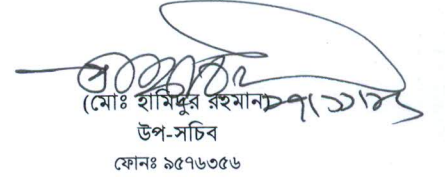 (মোঃ হামিদুর রহমান)
উপ-সচিব
ফোনঃ ৯৫৭৬৩৫৬